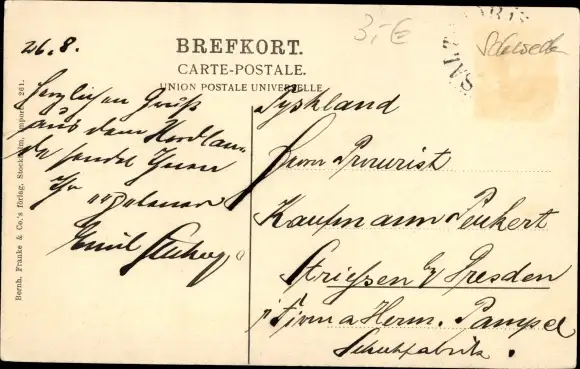 26.8.
BREFKORT.
CARTE-POSTALE.
UNION POSTALE UNIVERSELLE
3,- €
SALT
Schwed
Herzlichen Gruß
aus dem Nordlan-
de sendet Ihnen
Ihr
Emil
Tyskland
Herrn Prokurist
Kaufmann Peukert
Striesen b/ Dresden
i Firma Herm. Pampel
Schuhfabrik.
Bernh. Franke & Co.'s förlag, Stockholm, Import. 261.